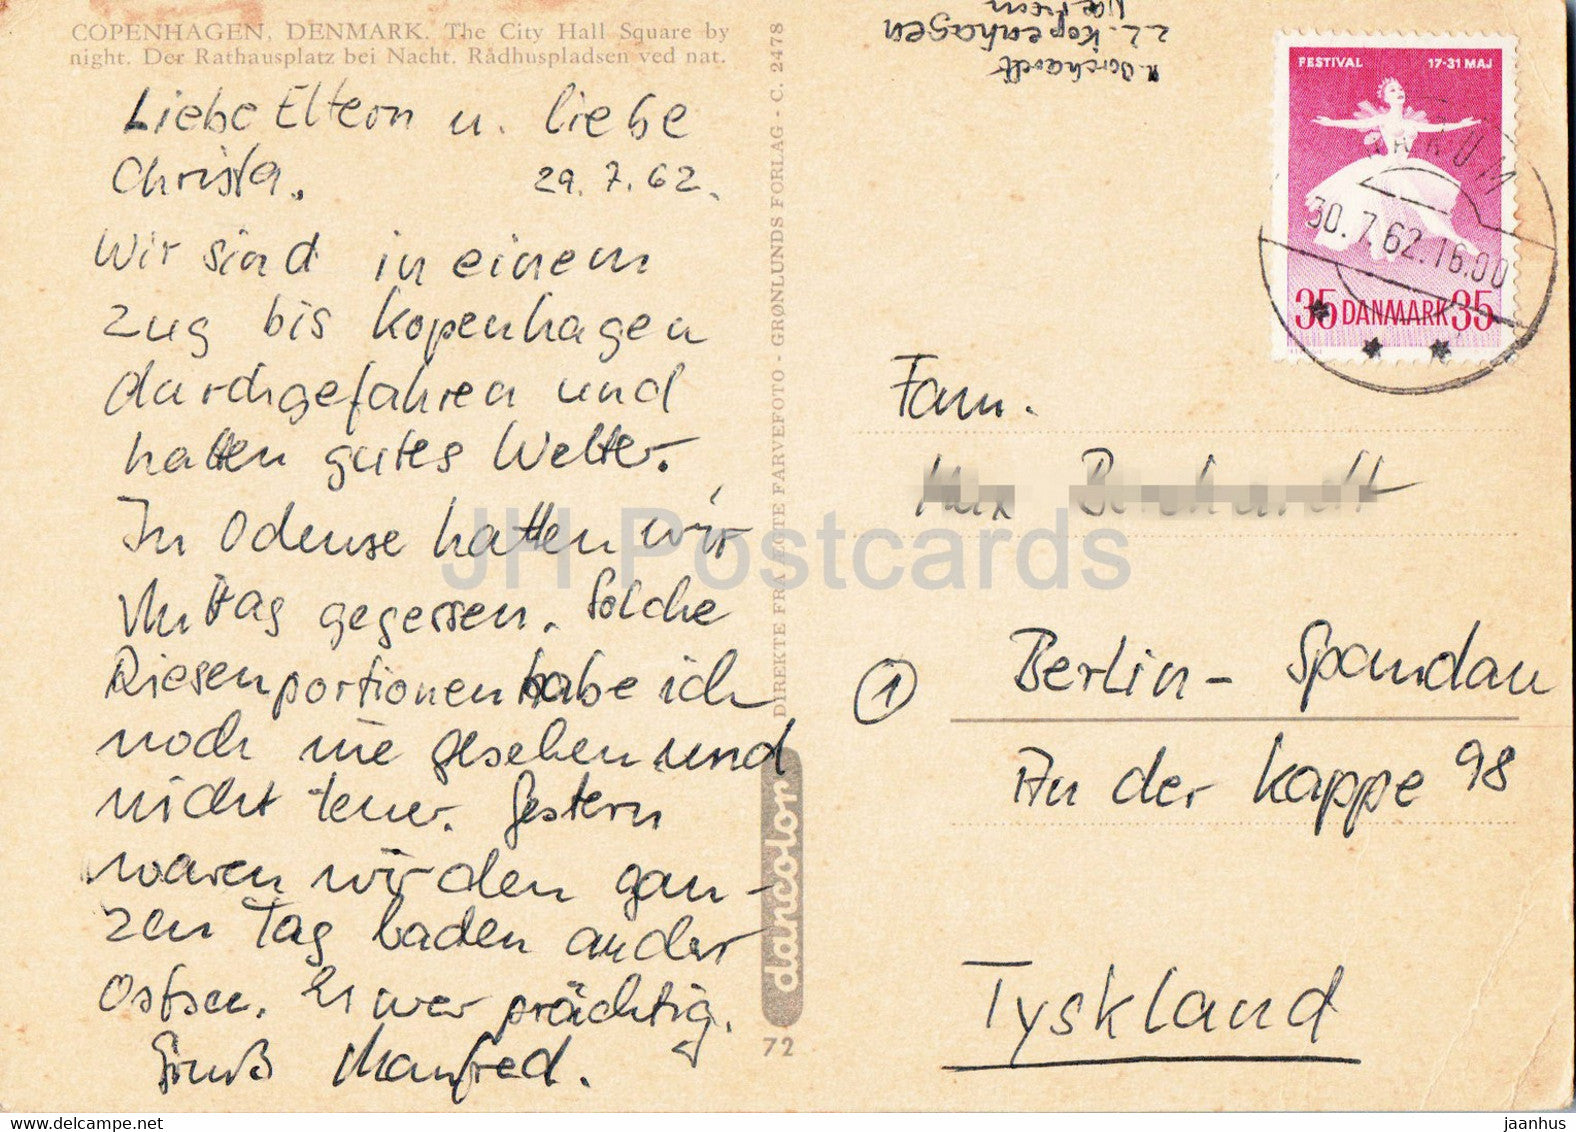 COPENHAGEN, DENMARK. The City Hall Square by
night. Der Rathausplatz bei Nacht. Rådhuspladsen ved nat.
Liebe Eltern u. liebe
Christa. 29.7.62.
Wir sind in einem
Zug bis Kopenhagen
durchgefahren und
hatten gutes Wetter.
In Odense hatten wir
Mittag gegessen. Solche
Riesenportionen habe ich
noch nie gesehen und
nicht teuer. Gestern
waren wir den gan-
zen Tag baden an der
Ostsee. Es war prächtig.
Gruß Manfred.
DIREKTE FRA ÆGTE FARVEFOTO - GRØNLUNDS FORLAG - C. 2478
dancolor
72
z.Z. Kopenhagen
FESTIVAL 17-31 MAJ
35 DANMARK 35
30.7.62.16.00
Fam.
Max
1 Berlin-Spandau
An der Kappe 98
Tyskland
JH Postcards
jaanhus